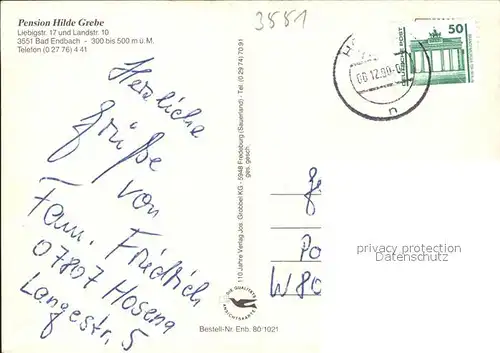 Pension Hilde Grebe
Liebigstr. 17 und Landstr. 10
3551 Bad Endbach - 300 bis 500 m ü.M.
Telefon (0 27 76) 4 41
3551
50
DEUTSCHE POST
06.12.90
n
Herzliche
Grüße
von
Fam. Friedrich
07807 Hosena
Langestr. 5
110 Jahre Verlag Jos. Grobbel KG · 5948 Fredeburg (Sauerland) · Tel. (0 29 74) 70 91
ges. gesch.
Po
W 80
privacy protection
Datenschutz
DIE QUALITÄTS
ANSICHTSKARTE
Bestell-Nr. Enb. 80/1021